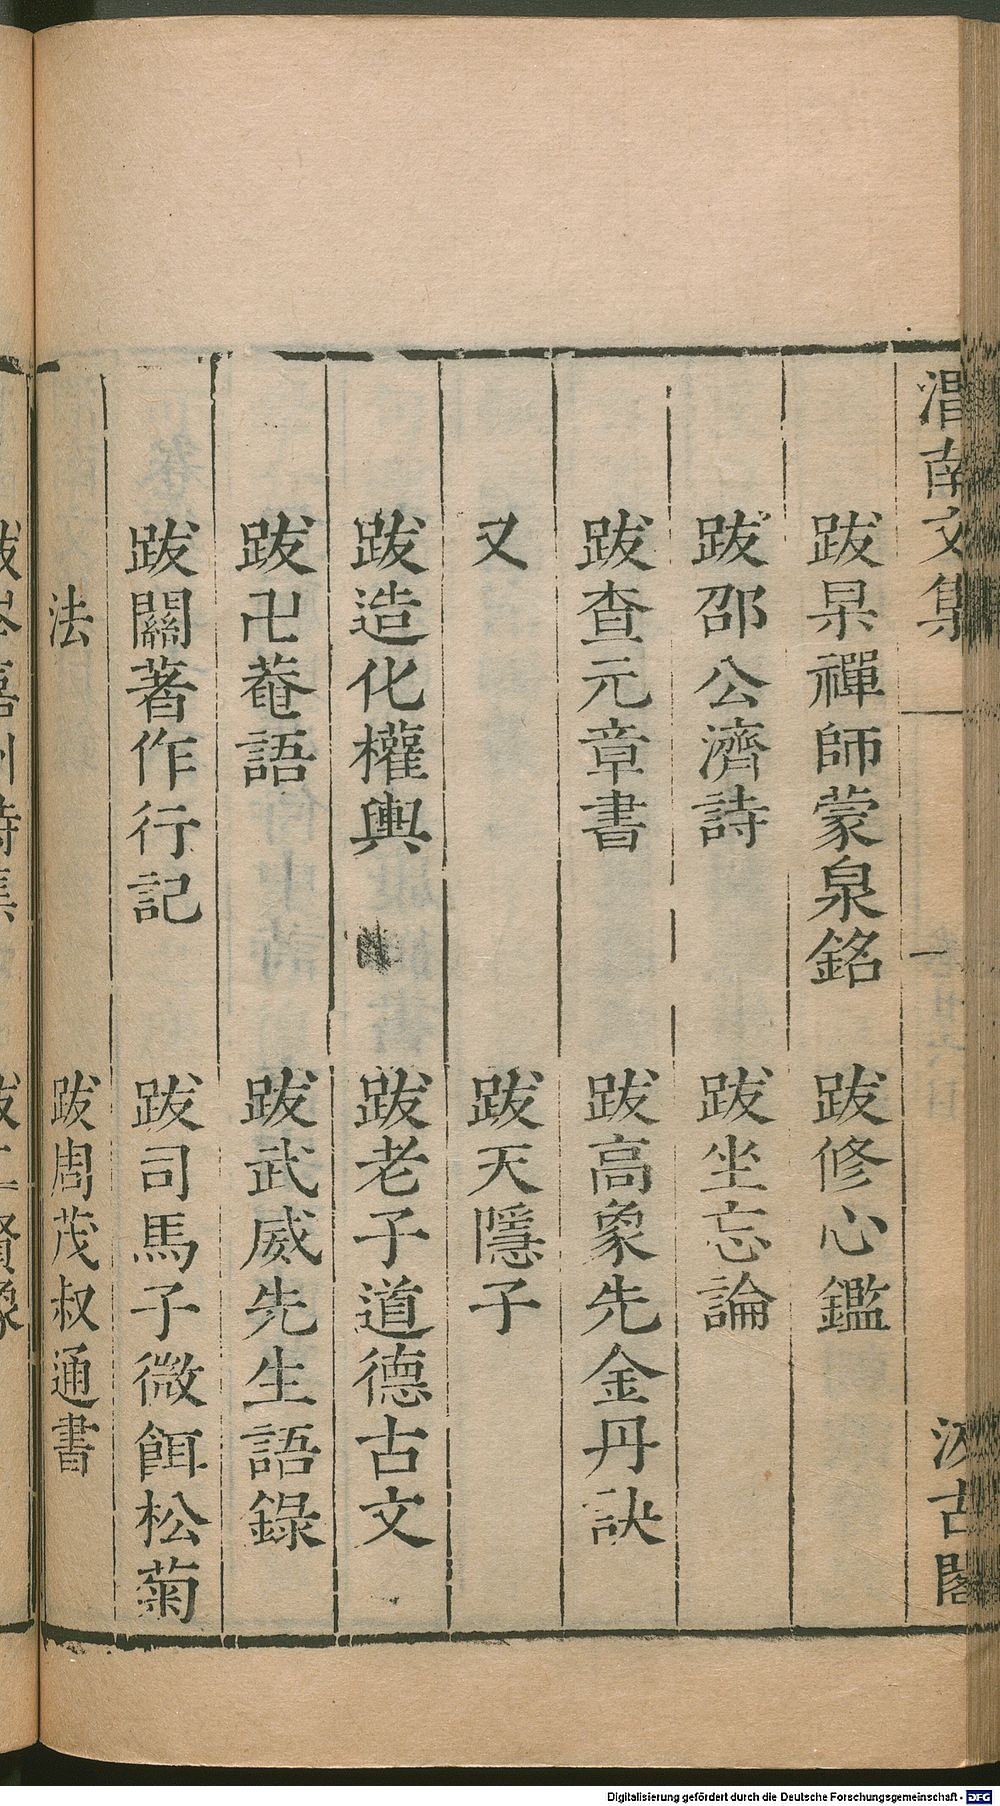 渭南文集 一 汲古閣
跋杲禪師蒙泉銘 跋修心鑑
跋邵公濟詩 跋坐忘論
跋查元章書 跋高象先金丹訣
又 跋天隱子
跋造化權輿 跋老子道德古文
跋卍菴語 跋武威先生語錄
跋關著作行記 跋司馬子微餌松菊
法 跋周茂叔通書
Digitalisierung gefördert durch die Deutsche Forschungsgemeinschaft - DFG